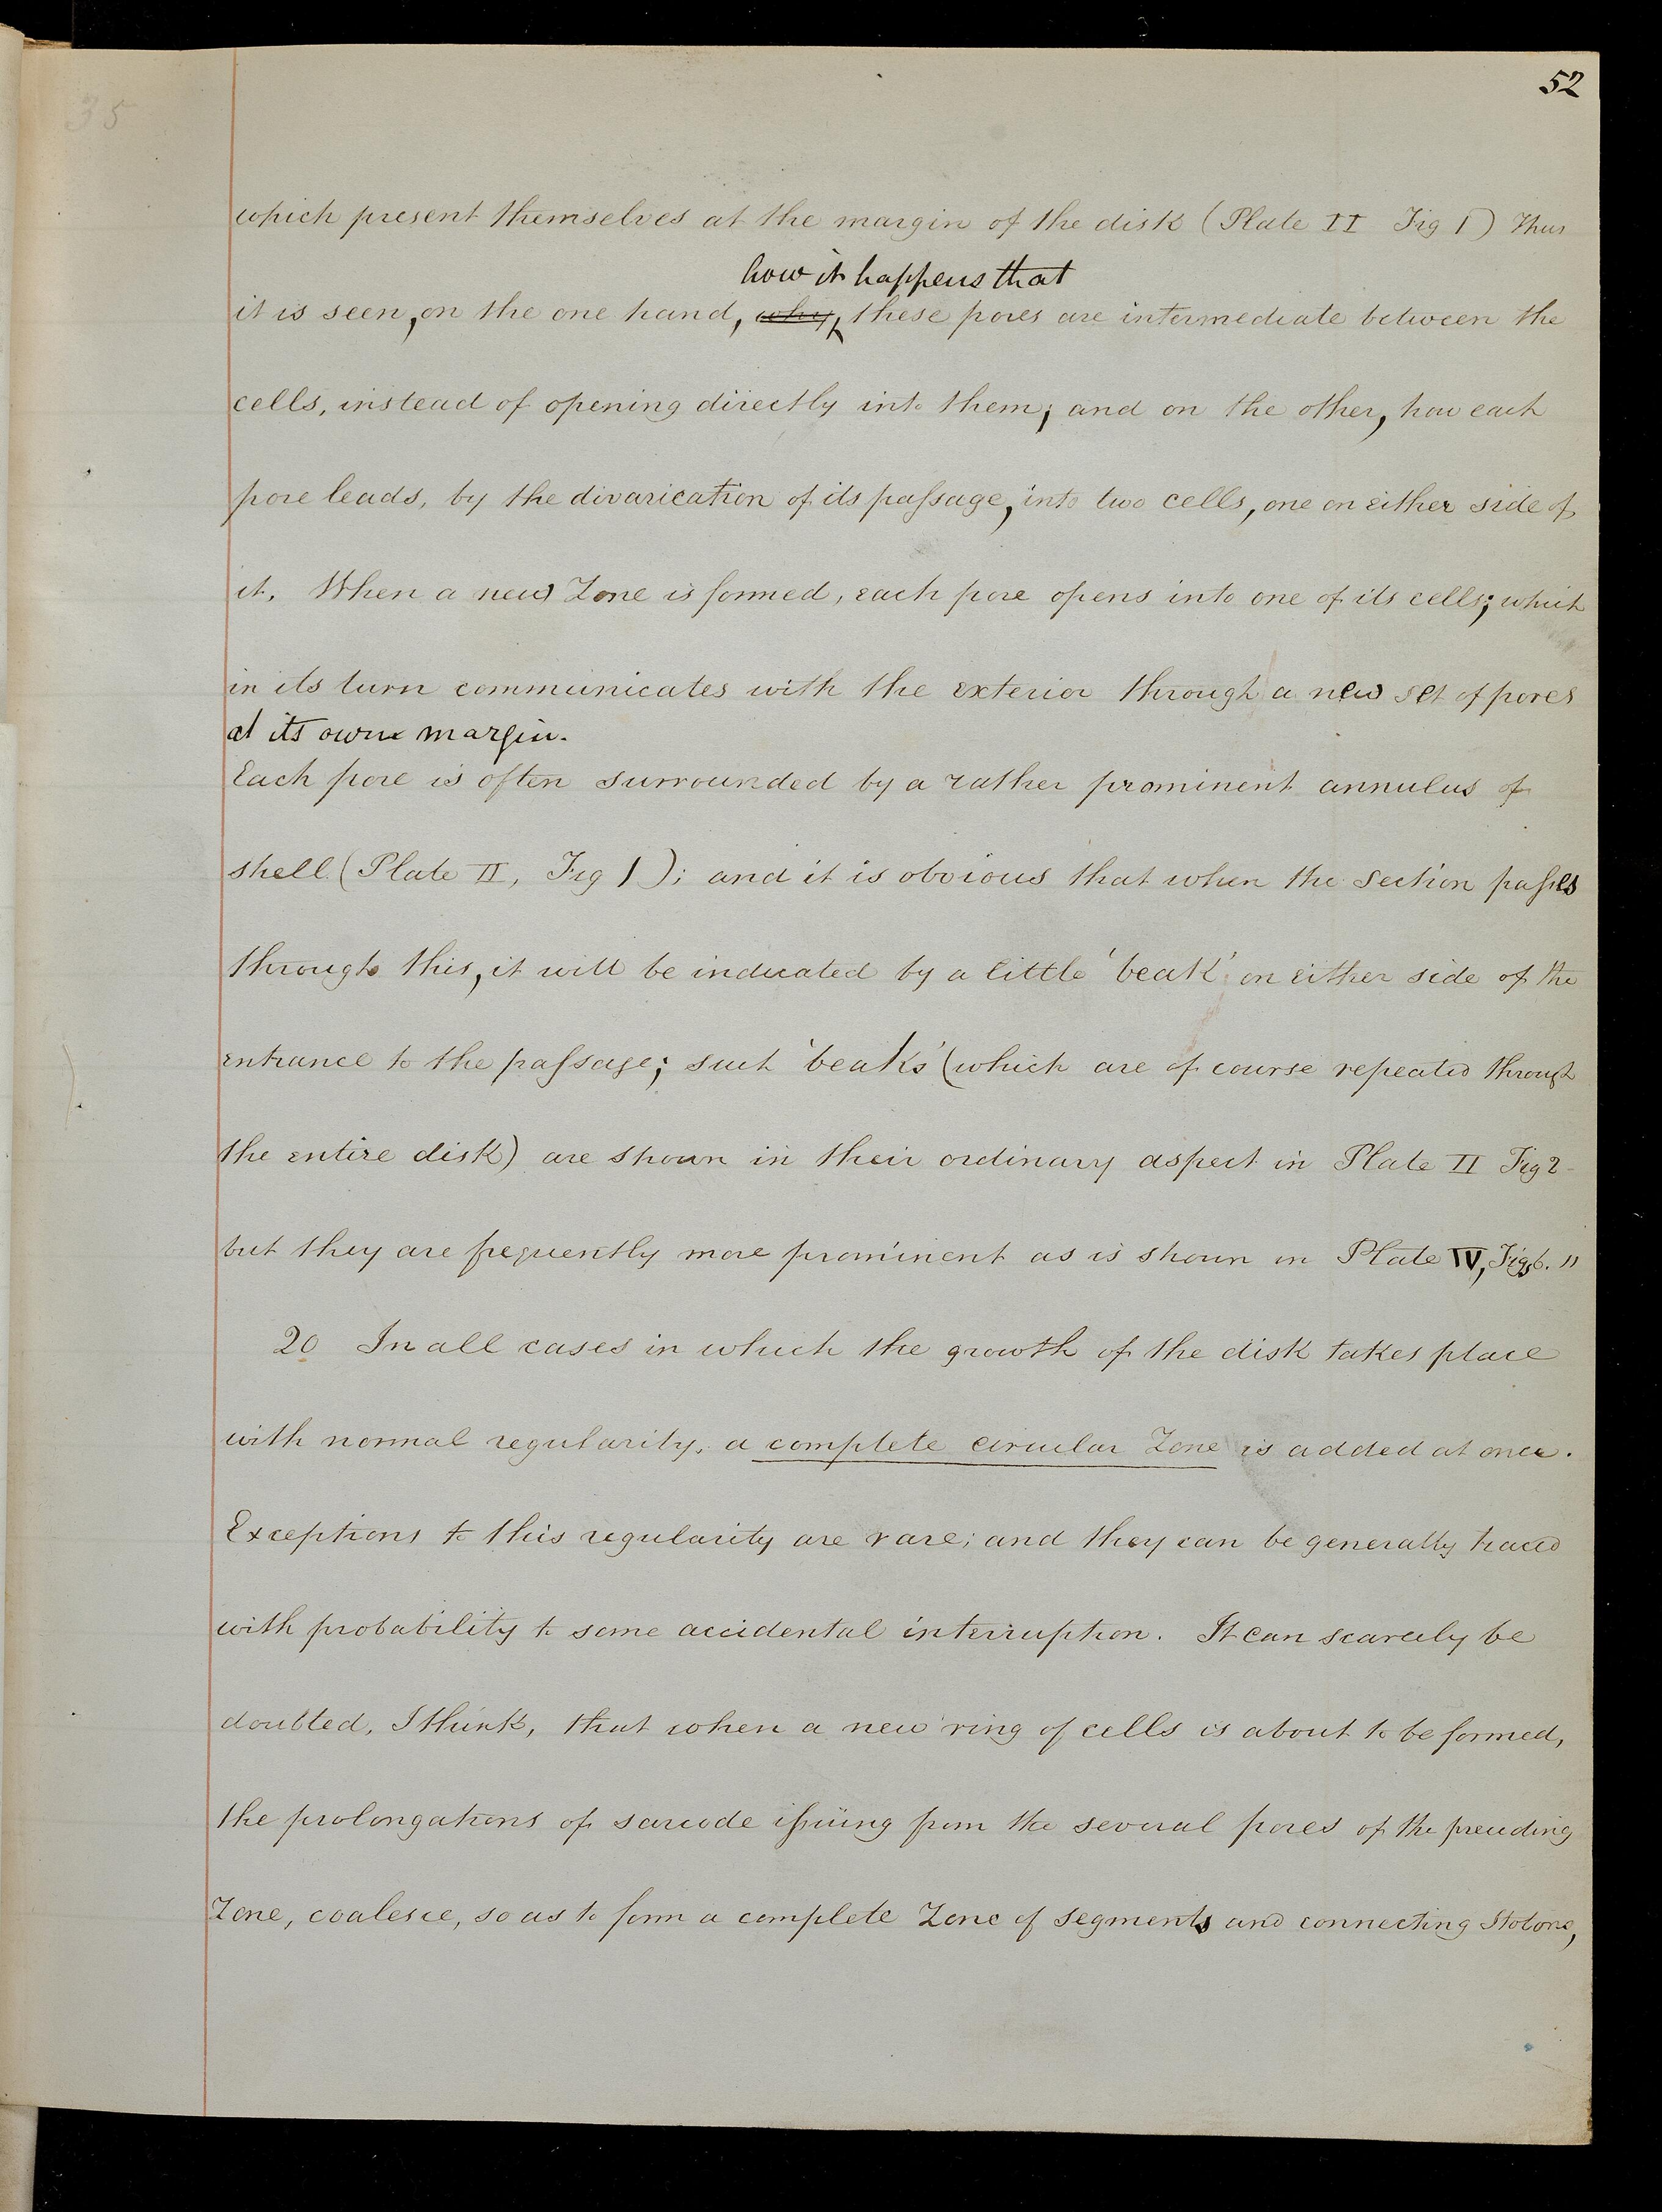 52
35
which present themselves at the margin of the disk (Plate II Fig 1) Thus
how it happens that
it is seen, on the one hand, why, these pores are intermediate between the
cells, instead of opening directly into them; and on the other, how each
pore leads, by the divarication of its passage, into two cells, one on either side of
it. When a new Zone is formed, each pore opens into one of its cells; which
in its turn communicates with the exterior through a new set of pores
at its own margin.
Each pore is often surrounded by a rather prominent annulus of
shell (Plate II, Fig 1); and it is obvious that when the section passes
through this, it will be indicated by a little 'beak' on either side of the
entrance to the passage; such 'beaks' (which are of course repeated through
the entire disk) are shown in their ordinary aspect in Plate II Fig 2
but they are frequently more prominent as is shown in Plate IV, Figs 6. 11
20 In all cases in which the growth of the disk takes place
with normal regularity, a complete circular Zone is added at once.
Exceptions to this regularity are rare; and they can be generally traced
with probability to some accidental interruption. It can scarcely be
doubted, I think, that when a new ring of cells is about to be formed,
the prolongations of sarcode issuing from the several pores of the preceding
Zone, coalesce, so as to form a complete Zone of segments and connecting Stolons,